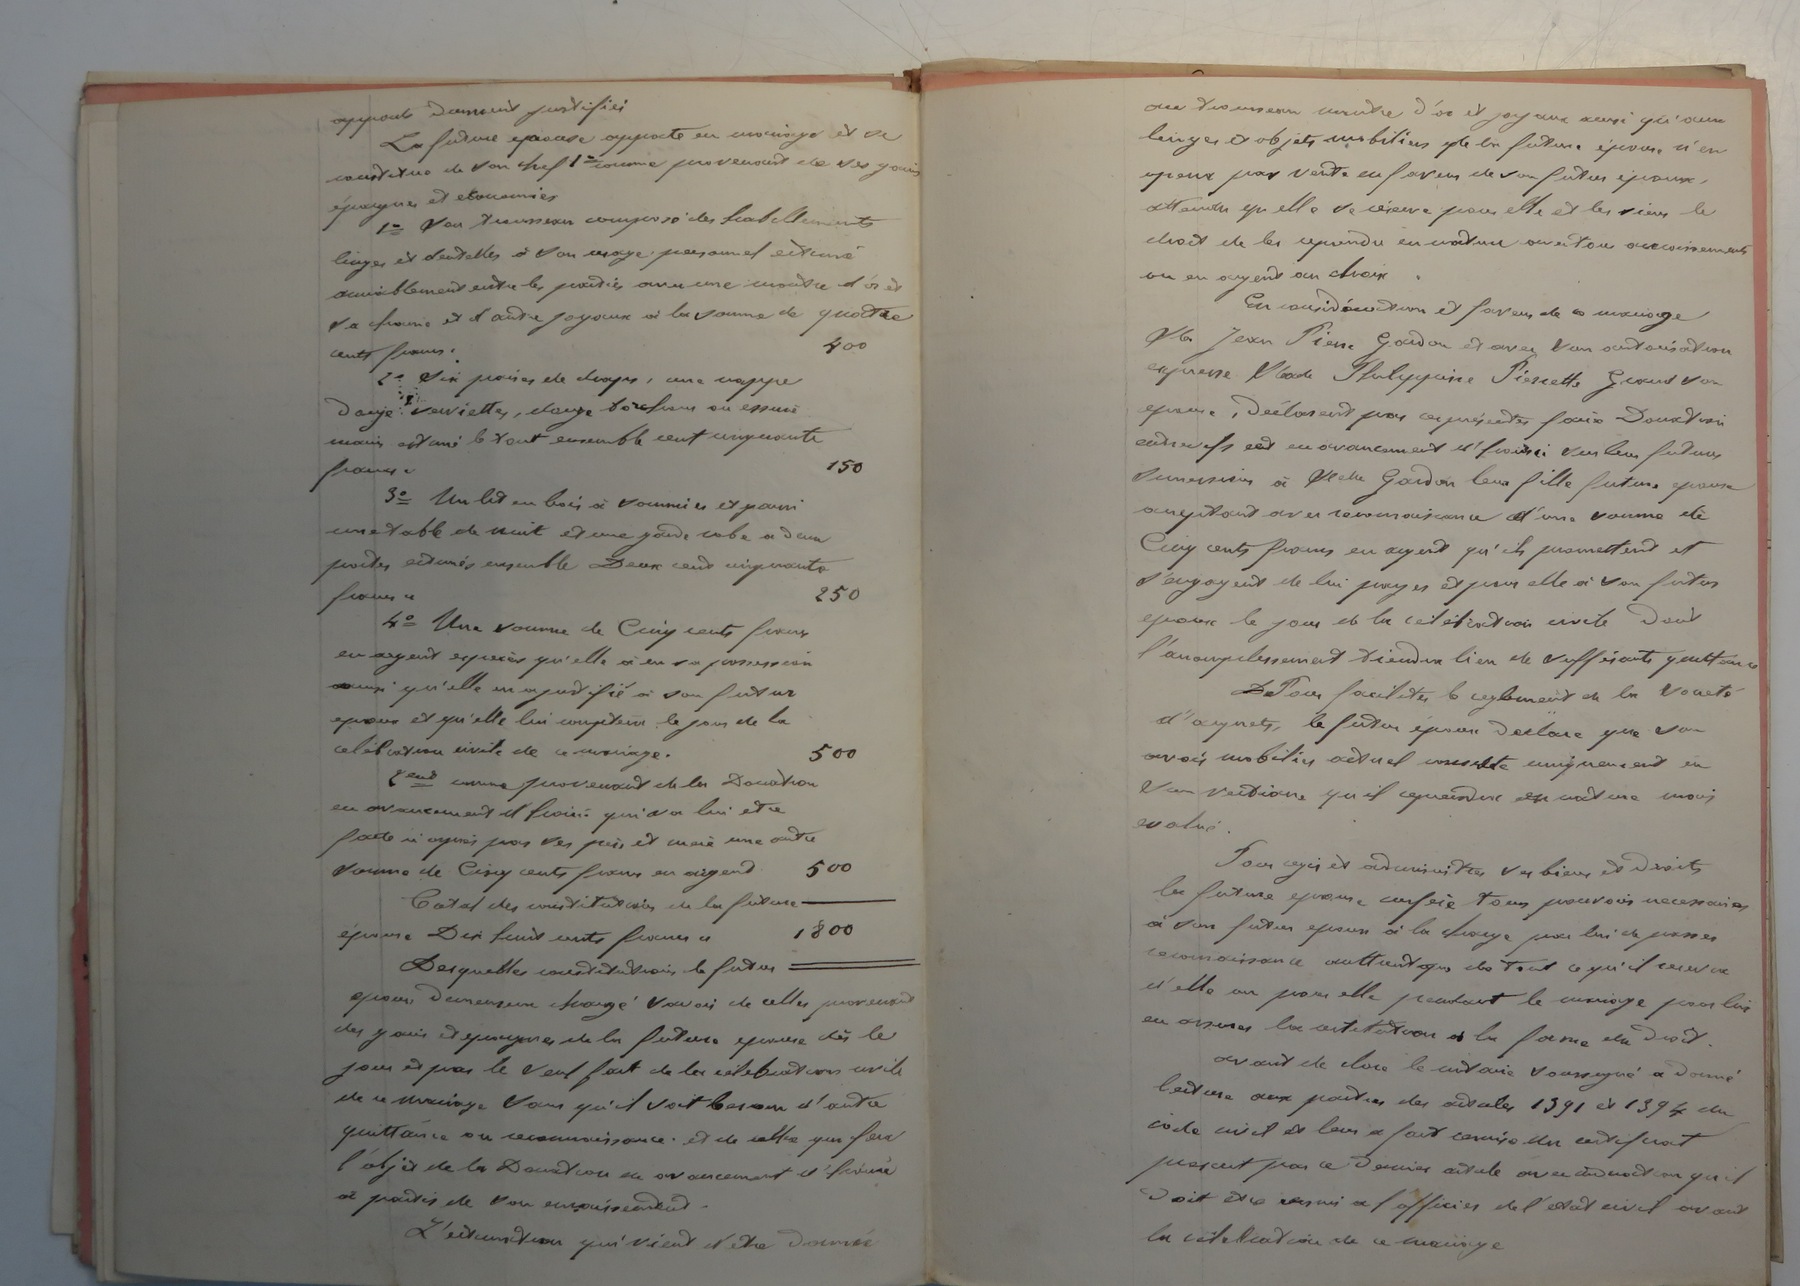 apports dument justifiés
La future épouse apporte en mariage et se
constitue de son chef 1° comme provenant de ses gains
épargnes et économies
1° Son trousseau composé des habillements
linges et dentelles à son usage personnel estimé
amiablement entre les parties avec une montre d'or et
sa chaine et d'autre joyaux à la somme de quatre
cents francs. 400
2° Six paires de draps, une nappe
douze serviettes, douze torchons ou essuie
mains estimé le tout ensemble cent cinquante
francs 150
3° Un lit en bois à sommier et garni
une table de nuit et une garde robe a deux
portes estimés ensemble Deux cent cinquante
francs 250
4° Une somme de Cinq cents francs
en argent espèces qu'elle a en sa possession
ainsi qu'elle en a justifié à son futur
epoux et qu'elle lui comptera le jour de la
célébration civile de ce mariage. 500
2ent comme provenant de la Donation
en avancement d'hoirie qui va lui etre
faite ci après par ses père et mère une autre
somme de Cinq cents francs en argent 500
Total des constitutions de la future
épouse Dix huit cents francs 1800
Desquelles constitutions le futur
epoux demeurera chargé savoir de celles provenant
des gains et epargnes de la future epouse dès le
jour et par le seul fait de la célébration civile
de ce mariage sans qu'il soit besoin d'autre
quittance ou reconnaissance. et de celle qui fera
l'objet de la Donation en avancement d'hoirie
a partir de son encaissement.
L'estimation qui vient d'être donnée
au trousseau montre d'or et joyaux ainsi qu'aux
linges et objets mobiliers de la future épouse n'en
opère pas vente en faveur de son futur époux,
attendu qu'elle se réserve pour elle et les siens le
droit de les reprendre en nature avec tous accroissements
ou en argent au choix.
En considération et faveur de ce mariage
Mr Jean Pierre Gardon et avec son autorisation
expresse Made Philippine Pierrette Giraud son
epouse, déclarent par ces présentes faire Donation
entrevifs et en avancement d'hoirie sur leur futures
successions à Melle Gardon leur fille future epouse
acceptant avec reconnaissance d'une somme de
Cinq cents francs en argent qu'ils promettent et
s'engagent de lui payer et pour elle à son futur
epoux le jour de la célébration civile Dont
l'accomplissement tiendra lieu de suffisante quittance
Pour faciliter le reglement de la société
d'acquets, le futur époux déclare que son
avoir mobilier actuel consiste uniquement en
son vestiaire qu'il reprendra en nature mois
evalué.
Pour regir et administrer ses biens et droits
la future epouse confère tous pouvoirs necessaires
à son futur epoux à la charge par lui de passer
reconnaissance authentique de tout ce qu'il recevra
d'elle ou pour elle pendant le mariage pour lui
en assurer la restitution a la forme du Droit.
avant de clore le notaire soussigné a donné
lecture aux parties des articles 1391 et 1394 du
code civil et leur a fait remise du certificat
prescrit par ce dernier article avec indication qu'il
doit être remis a l'officier de l'état civil avant
la célébration de ce mariage